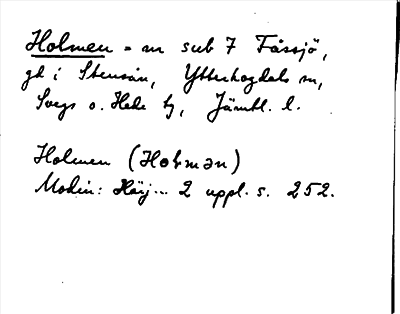 Holmen = m sub 7 Fåssjö,
gd i Stensån, Ytterhogdals sn,
Svegs o. Hede tg, Jämtl. l.
Holmen (Holmən)
Modin: Härj... 2 uppl. s. 252.